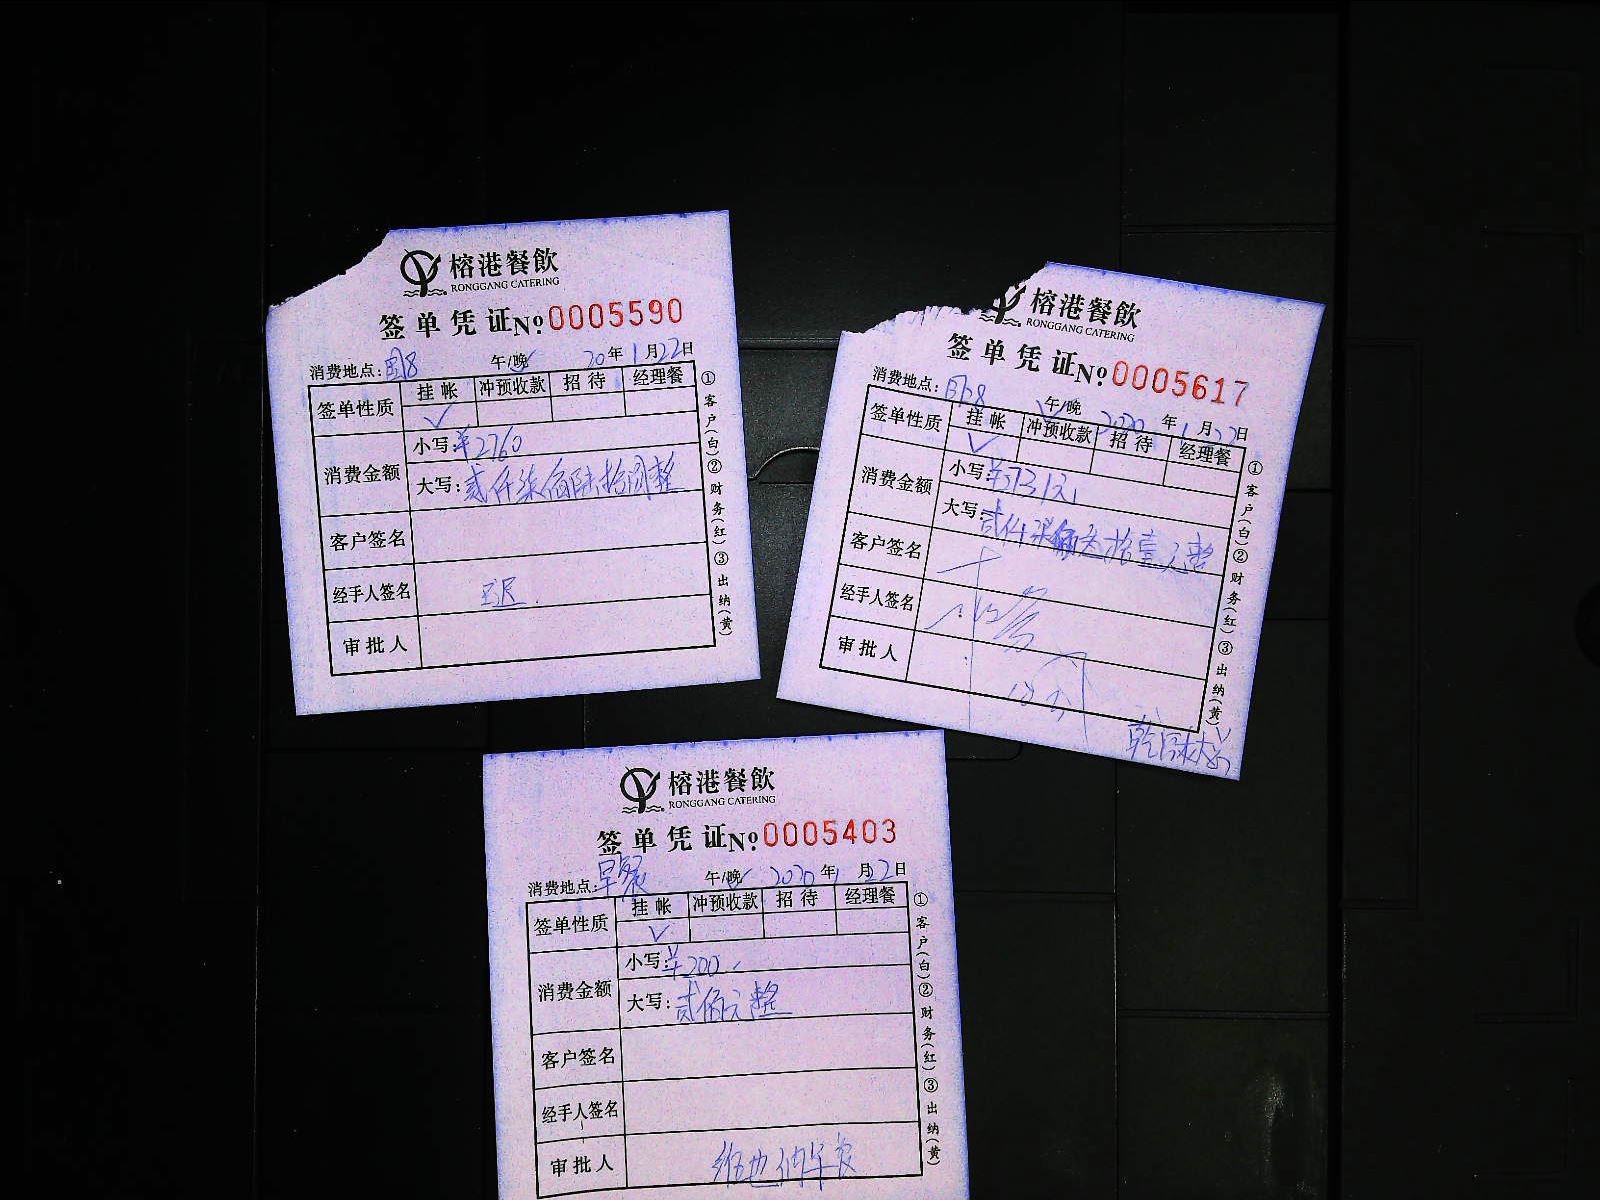 榕港餐飲
RONGGANG CATERING
签单凭证№0005590
消费地点: 午/晚 2020年1月22日
签单性质 挂帐 冲预收款 招待 经理餐
✓
消费金额
小写:¥2760
大写:贰仟柒佰陆拾圆整
客户签名
经手人签名
审批人
①客户(白)②财务(红)③出纳(黄)
榕港餐飲
RONGGANG CATERING
签单凭证№0005617
消费地点: 午/晚 2020年1月22日
签单性质 挂帐 冲预收款 招待 经理餐
✓
消费金额
小写:
大写: 元整
客户签名
经手人签名
审批人
①客户(白)②财务(红)③出纳(黄)
榕港餐飲
RONGGANG CATERING
签单凭证№0005403
消费地点:早餐 午/晚 2020年1月22日
签单性质 挂帐 冲预收款 招待 经理餐
✓
消费金额
小写:¥200
大写:贰佰元整
客户签名
经手人签名
审批人 维也纳年夜
①客户(白)②财务(红)③出纳(黄)